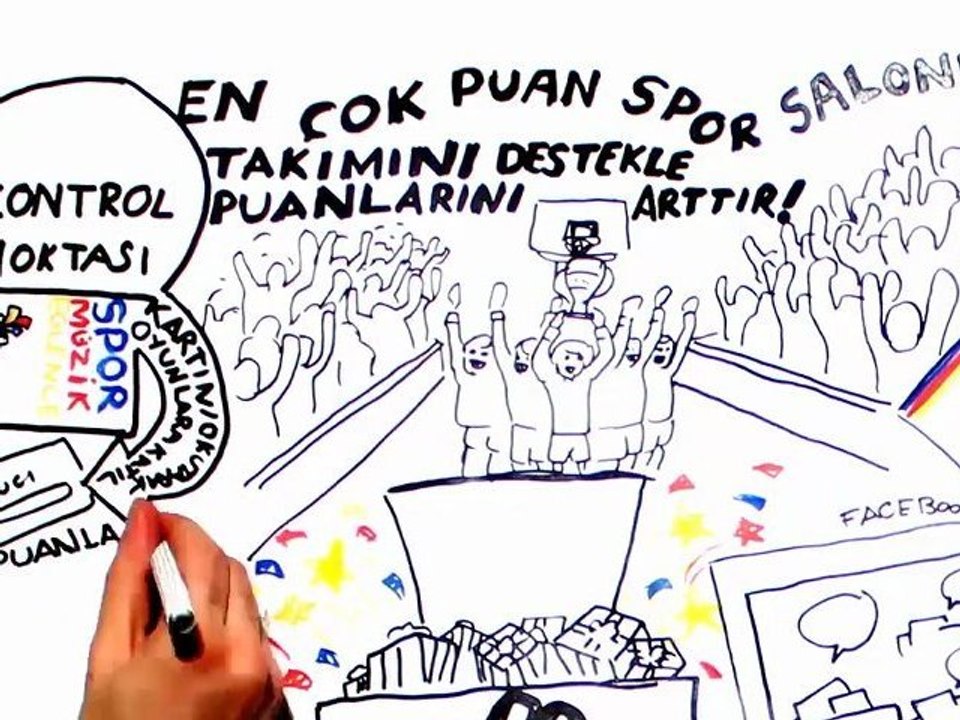 EN ÇOK PUAN SPOR SALON
TAKIMINI DESTEKLE
PUANLARINI ARTTIR!
CONTROL
NOKTASI
SPOR
MÜZİK
EĞLENCE
KARTINI OKUTARAK
OYUNLARA KATIL
UCI
PUANLA
FACEBOO